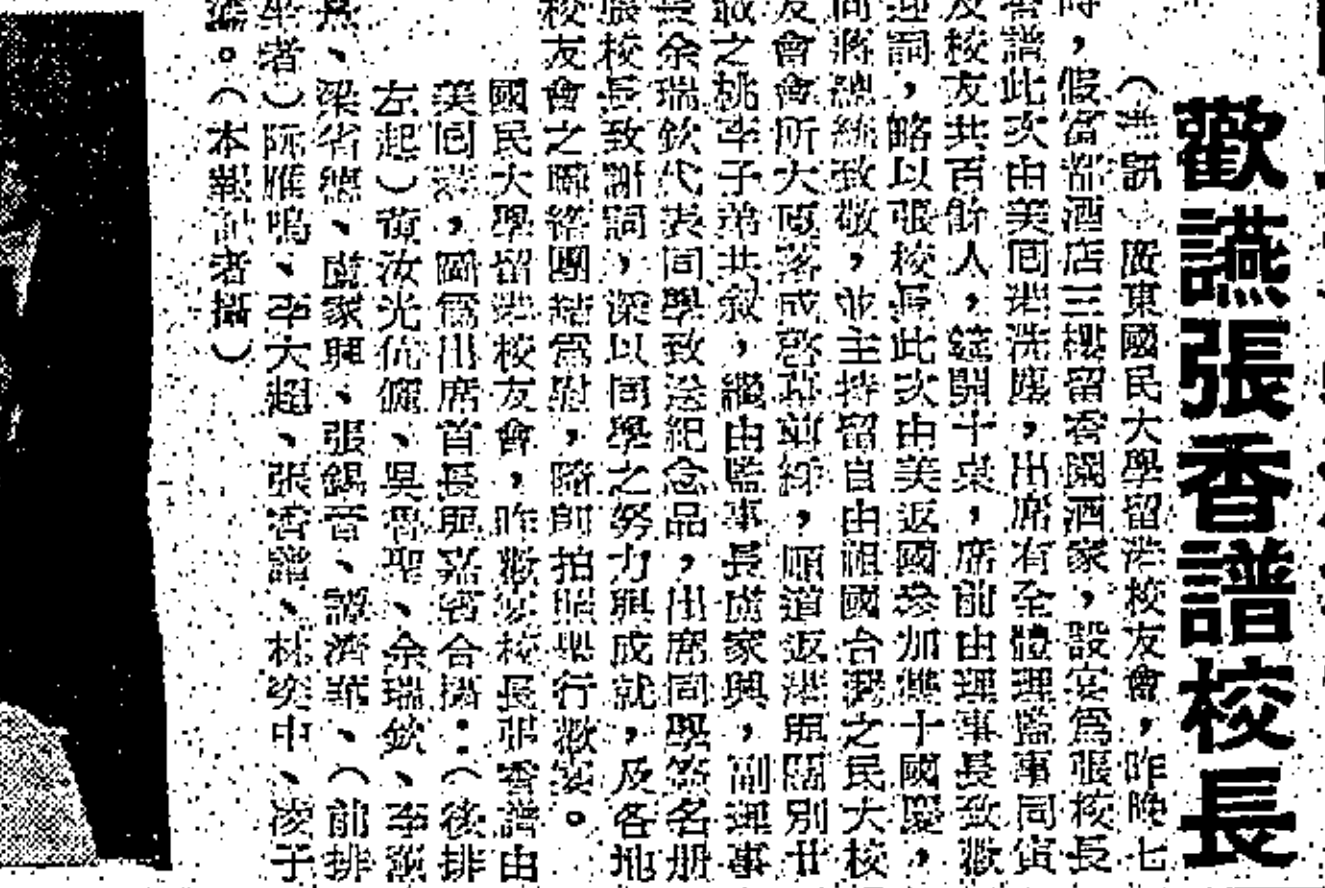 歡讌張香譜校長
（港訊）廣東國民大學留港校友會，昨晚七
時，假富都酒店三樓留香園酒家，設宴為張校長
香譜此次由美囘港洗塵，出席有全體理監事同寅
及校友共百餘人，筵開十桌，席前由理事長致歡
迎詞，略以張校長此次由美返國參加雙十國慶，
向蔣總統致敬，並主持留自由祖國台灣之民大校
友會會所大廈落成啓幕前綵，順道返港與闊別廿
載之桃李子弟共叙，繼由監事長盧家興，副理事
長余瑞欽代表同學致送紀念品，出席同學簽名册
張校長致謝詞，深以同學之努力與成就，及各地
校友會之聯絡團結為慰，隨即拍照舉行歡宴。
國民大學留港校友會，昨歡宴校長張香譜由
美囘港，圖為出席首長與嘉賓合攝：（後排
左起）黃汝光伉儷、吳晋聖、余瑞欽、李
梁省德、盧家興、張錫音、譚濟華、（前排
坐者）阮雁鳴、李大超、張香譜、林奕中、凌子
。（本報記者攝）